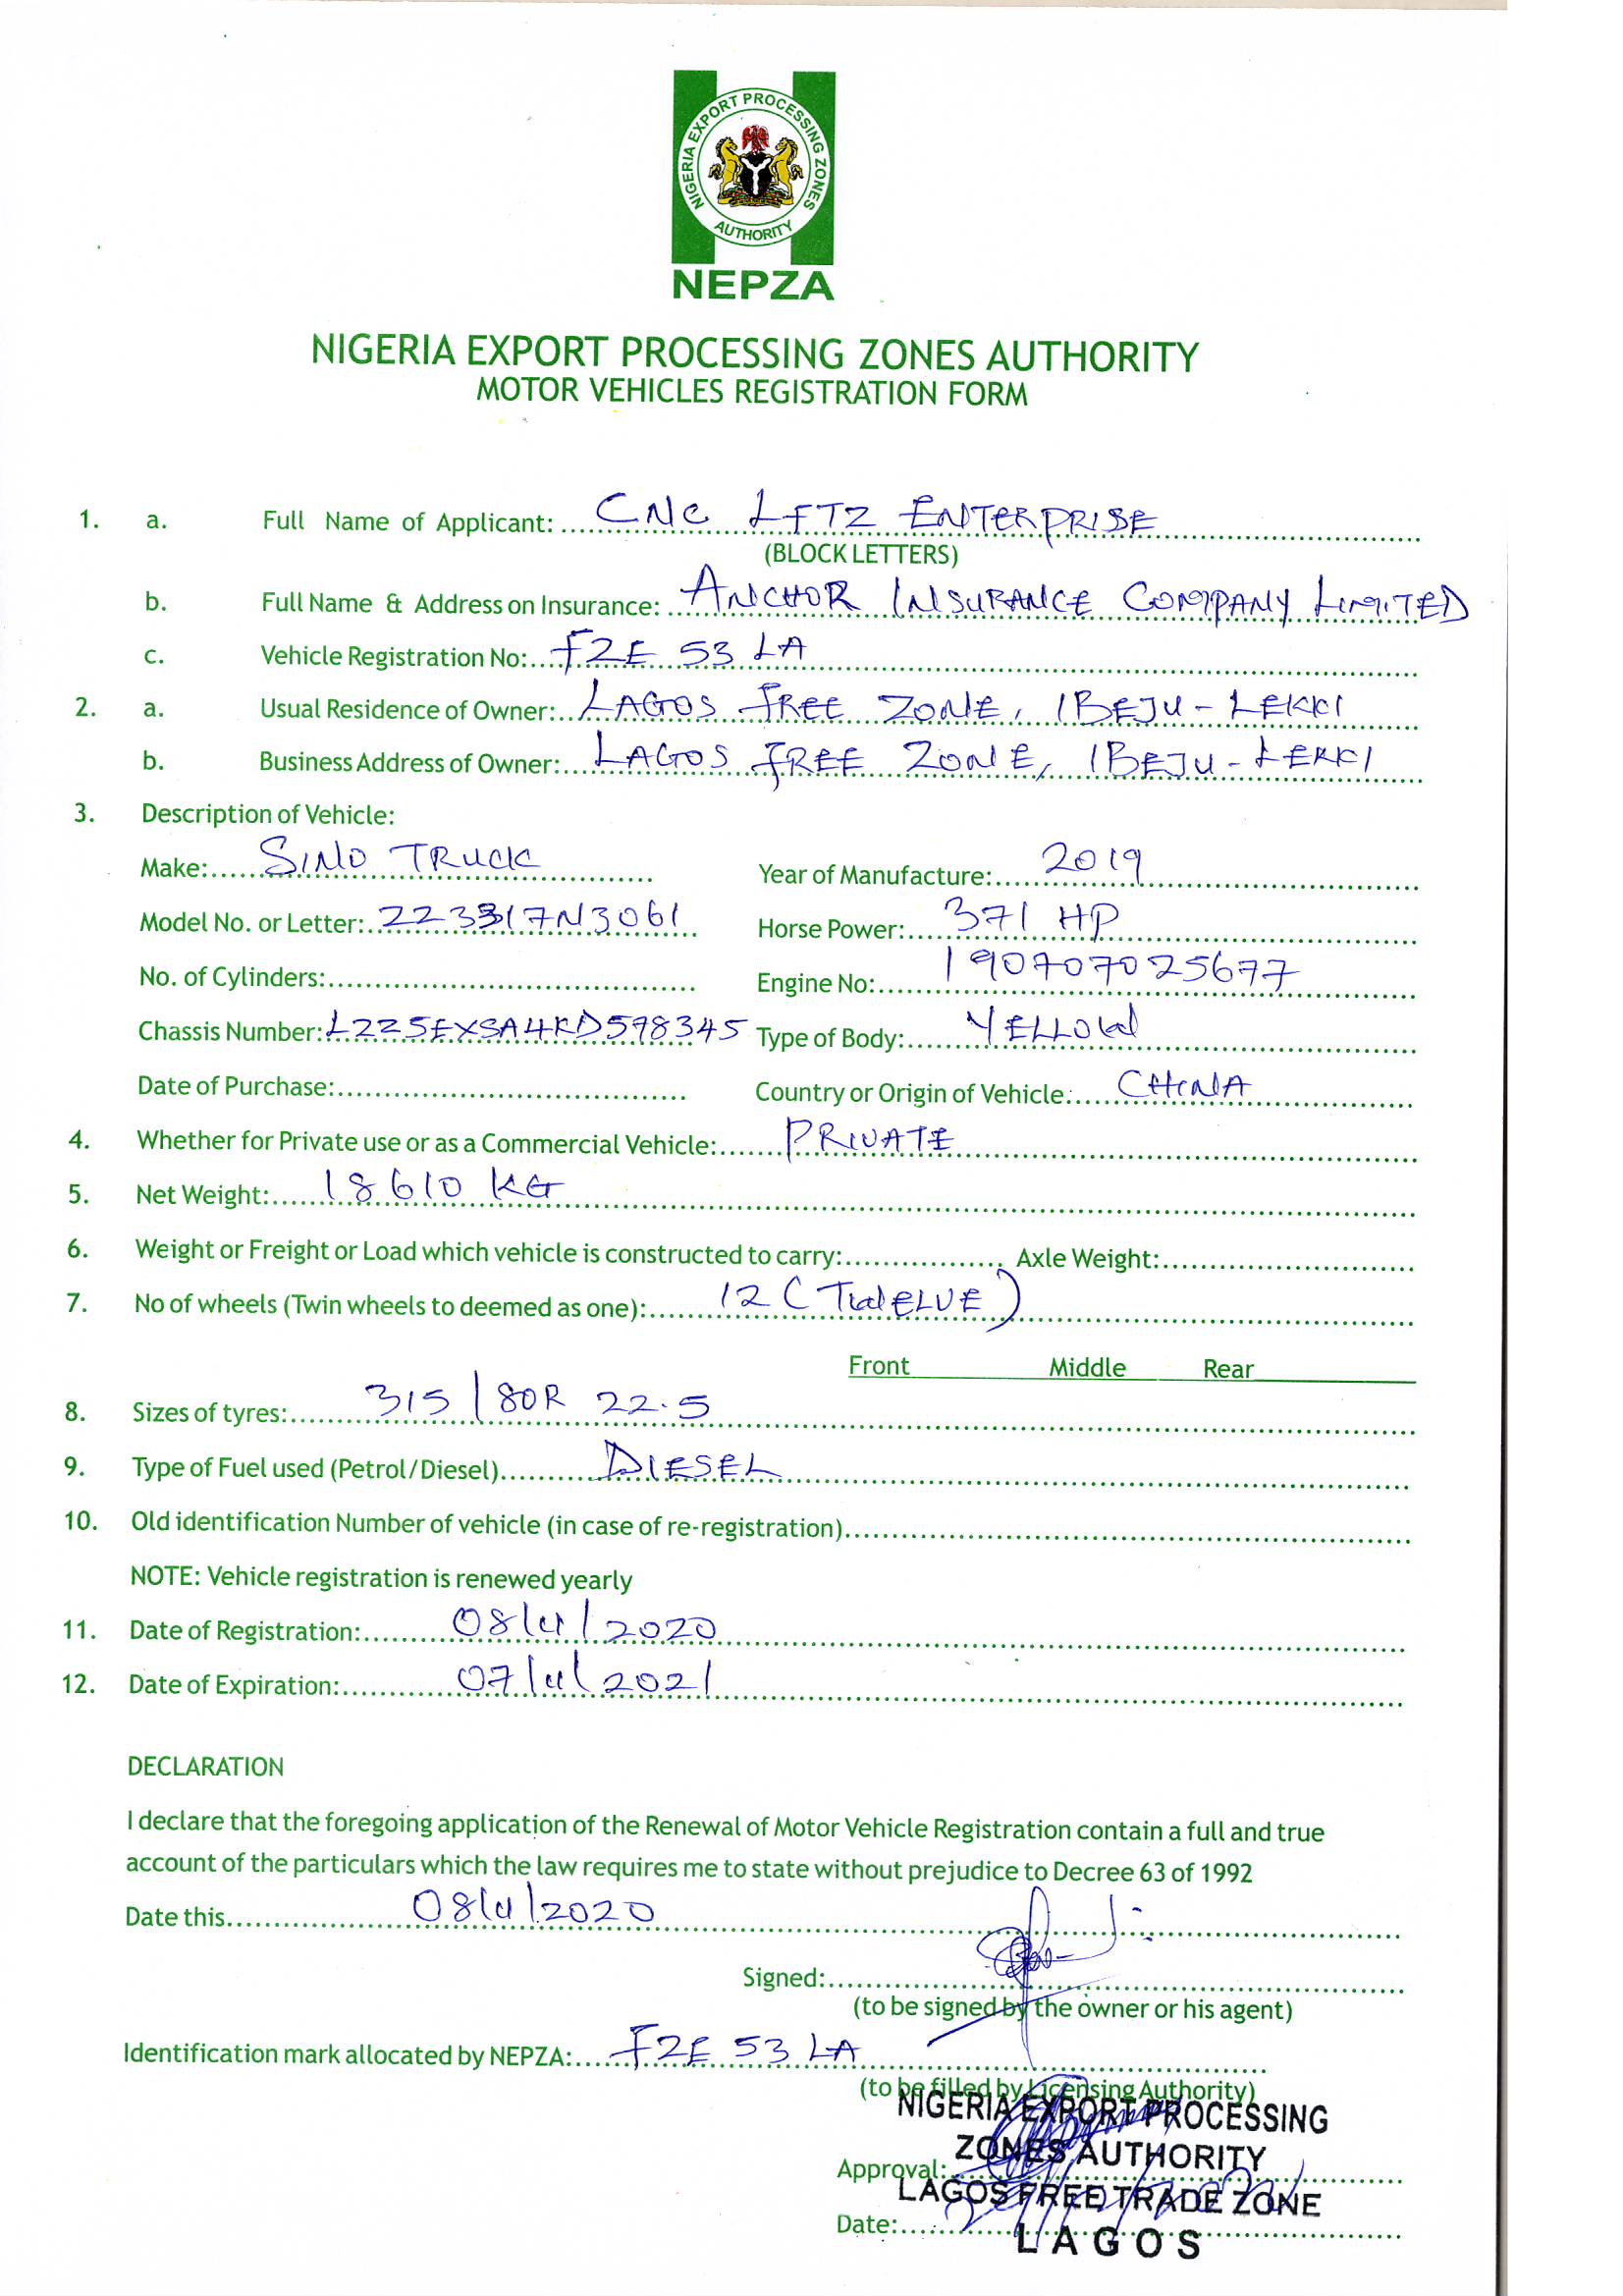 NIGERIA EXPORT PROCESSING ZONES
AUTHORITY
NEPZA
NIGERIA EXPORT PROCESSING ZONES AUTHORITY
MOTOR VEHICLES REGISTRATION FORM
1. a. Full Name of Applicant: CNC LFTZ ENTERPRISE
(BLOCK LETTERS)
b. Full Name & Address on Insurance: ANCHOR INSURANCE COMPANY LIMITED
c. Vehicle Registration No: FZE 53 LA
2. a. Usual Residence of Owner: LAGOS FREE ZONE, IBEJU-LEKKI
b. Business Address of Owner: LAGOS FREE ZONE, IBEJU-LEKKI
3. Description of Vehicle:
Make: SINO TRUCK Year of Manufacture: 2019
Model No. or Letter: ZZ3317N3061 Horse Power: 371 HP
No. of Cylinders: Engine No: 190707025677
Chassis Number: LZZ5EXSA4KD598345 Type of Body: YELLOW
Date of Purchase: Country or Origin of Vehicle: CHINA
4. Whether for Private use or as a Commercial Vehicle: PRIVATE
5. Net Weight: 18610 KG
6. Weight or Freight or Load which vehicle is constructed to carry: Axle Weight:
7. No of wheels (Twin wheels to deemed as one): 12 (TWELVE)
Front Middle Rear
8. Sizes of tyres: 315/80R 22.5
9. Type of Fuel used (Petrol/Diesel) DIESEL
10. Old identification Number of vehicle (in case of re-registration)
NOTE: Vehicle registration is renewed yearly
11. Date of Registration: 08/11/2020
12. Date of Expiration: 07/11/2021
DECLARATION
I declare that the foregoing application of the Renewal of Motor Vehicle Registration contain a full and true
account of the particulars which the law requires me to state without prejudice to Decree 63 of 1992
Date this 08/11/2020
Signed:
(to be signed by the owner or his agent)
Identification mark allocated by NEPZA: FZE 53 LA
(to be filled by Licensing Authority)
NIGERIA EXPORT PROCESSING
ZONES AUTHORITY
Approval:
LAGOS FREE TRADE ZONE
Date:
LAGOS